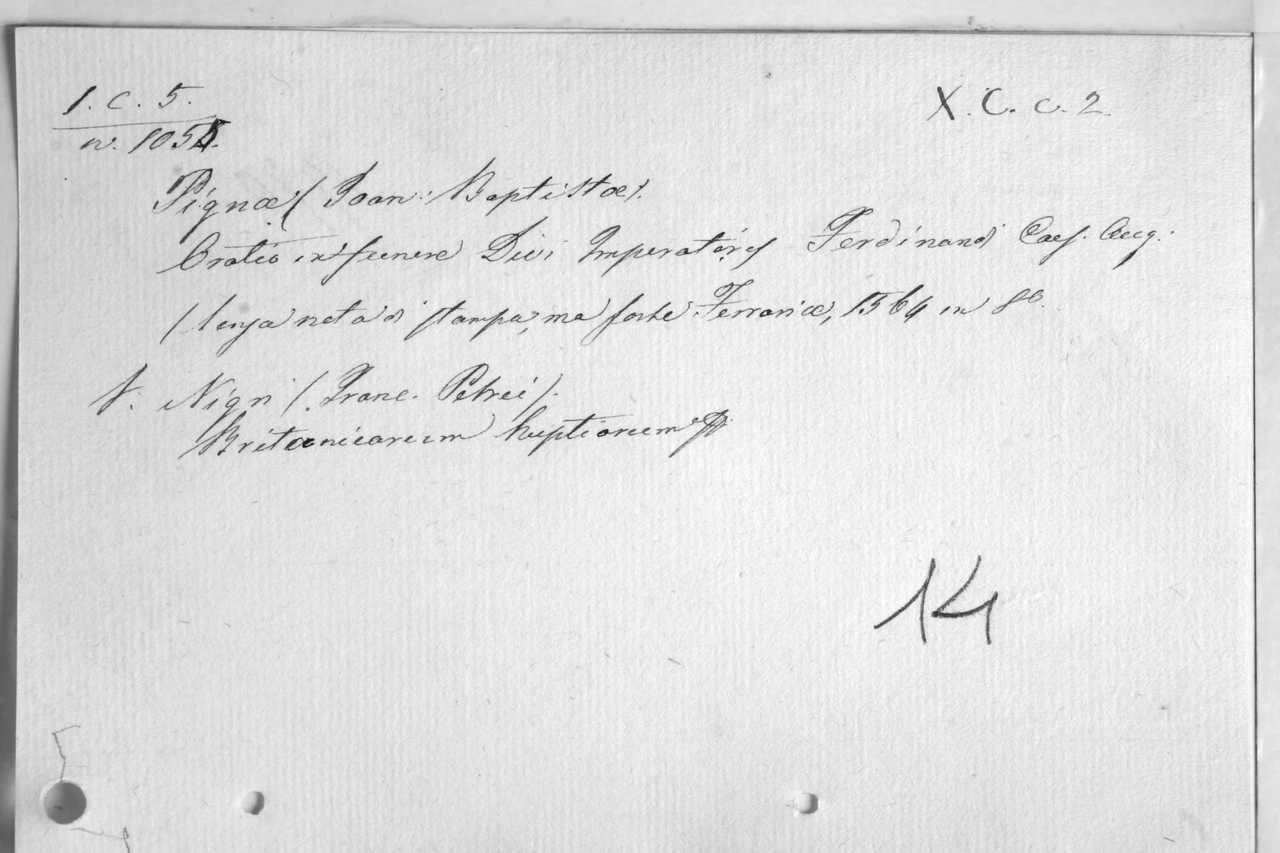 1. C. 5.
n. 1054.
X. C. c. 2.
Pignæ (Joan: Baptistæ).
Oratio in funere Divi Imperatoris Ferdinandi Caes. Aug:
(senza nota di stampa, ma forse Ferrariæ, 1564 in 8º.
V. Nigri (Franc. Petrei).
Britannicarum Nuptiarum
14